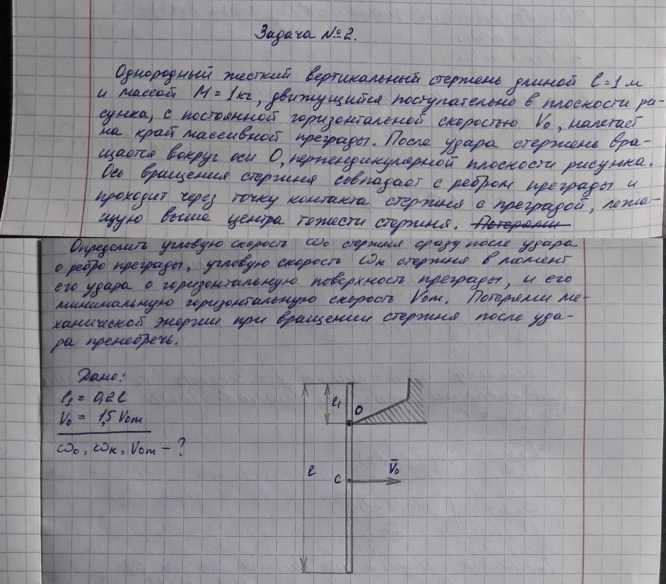 Задача №2.
Однородный жесткий вертикальный стержень длиной l=1 м
и массой M=1кг, движущийся поступательно в плоскости ри-
сунка, с постоянной горизонтальной скоростью V₀, налетает
на край массивной преграды. После удара стержень вра-
щается вокруг оси O, перпендикулярной плоскости рисунка.
Ось вращения стержня совпадает с ребром преграды и
проходит через точку контакта стержня с преградой, лежа-
щую выше центра тяжести стержня.
Определить угловую скорость ω₀ стержня сразу после удара
о ребро преграды, угловую скорость ωк стержня в момент
его удара о горизонтальную поверхность преграды, и его
минимальную горизонтальную скорость V₀m. Потерями ме-
ханической энергии при вращении стержня после уда-
ра пренебречь.
Дано:
l₁ = 0,2l
V₀ = 1,5 V₀m
ω₀, ωк, V₀m - ?
l₁
O
l
C
V̄₀